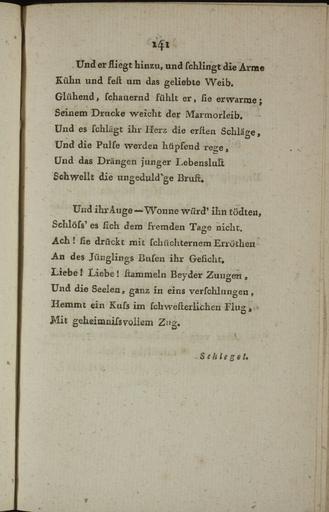 141
Und er fliegt hinzu, und ſchlingt die Arme
Kühn und feſt um das geliebte Weib.
Glühend, ſchauernd fühlt er, ſie erwarme;
Seinem Drucke weicht der Marmorleib.
Und es ſchlägt ihr Herz die erſten Schläge,
Und die Pulſe werden hüpfend rege,
Und das Drängen junger Lebensluſt
Schwellt die ungeduld'ge Bruſt.
Und ihr Auge — Wonne würd' ihn tödten,
Schlöſs' es ſich dem fremden Tage nicht.
Ach! ſie drückt mit ſchüchternem Erröthen
An des Jünglings Buſen ihr Geſicht.
Liebe! Liebe! ſtammeln Beyder Zungen,
Und die Seelen, ganz in eins verſchlungen,
Hemmt ein Kuſs im ſchweſterlichen Flug,
Mit geheimniſsvollem Zug.
Schlegel.